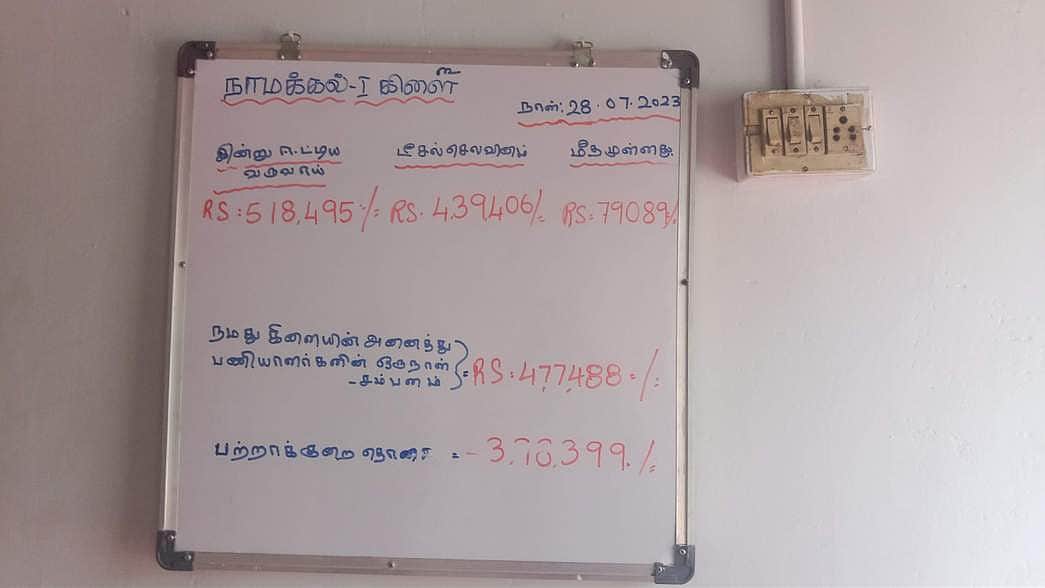 நாமக்கல்-I கிளை
நாள்: 28.07.2023
இன்று ஈட்டிய வருவாய்
டீசல் செலவினம்
மீதமுள்ளது
RS: 518,495/-
RS. 4,39,406/-
RS: 79089/-
நமது கிளையின் அனைத்து
பணியாளர்களின் ஒருநாள்
-சம்பளம் = RS: 4,77,488 = /-
பற்றாக்குறை தொகை = -